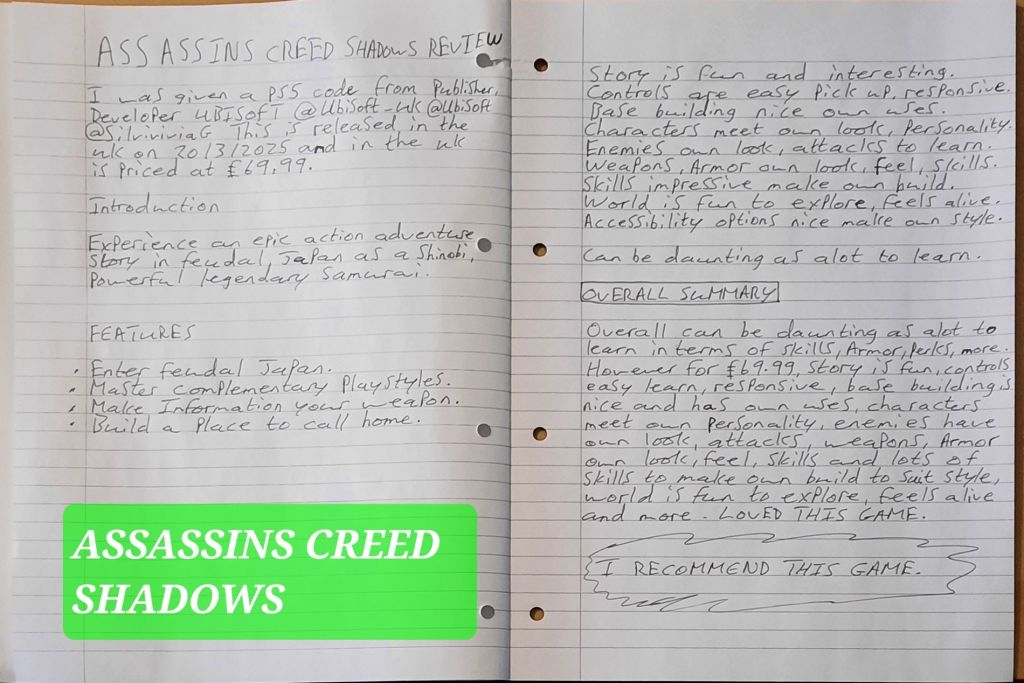 ASSASSINS CREED SHADOWS REVIEW
I was given a PS5 code from Publisher,
Developer UBISOFT @Ubisoft_uk @Ubisoft
@SilviviviaG This is released in the
uk on 20/3/2025 and in the uk
is priced at £69.99.
Introduction
Experience an epic action adventure
story in feudal, Japan as a Shinobi,
Powerful legendary Samurai.
FEATURES
• Enter feudal Japan.
• Master Complementary Playstyles.
• Make Information your weapon.
• Build a Place to call home.
ASSASSINS CREED
SHADOWS
Story is fun and interesting.
Controls are easy Pick up, responsive.
Base building nice own uses.
Characters meet own look, Personality.
Enemies own look, attacks to learn.
Weapons, Armor own look, feel, skills.
Skills impressive make own build.
World is fun to explore, feels alive.
Accessibility options nice make own style.
Can be daunting as alot to learn.
OVERALL SUMMARY
Overall can be daunting as alot to
learn in terms of skills, Armor, Perks, more.
However for £69.99, story is fun, controls
easy learn, responsive, base building is
nice and has own uses, characters
meet own Personality, enemies have
own look, attacks, weapons, Armor
own look, feel, skills and lots of
skills to make own build to suit style,
world is fun to explore, feels alive
and more. LOVED THIS GAME.
I RECOMMEND THIS GAME.